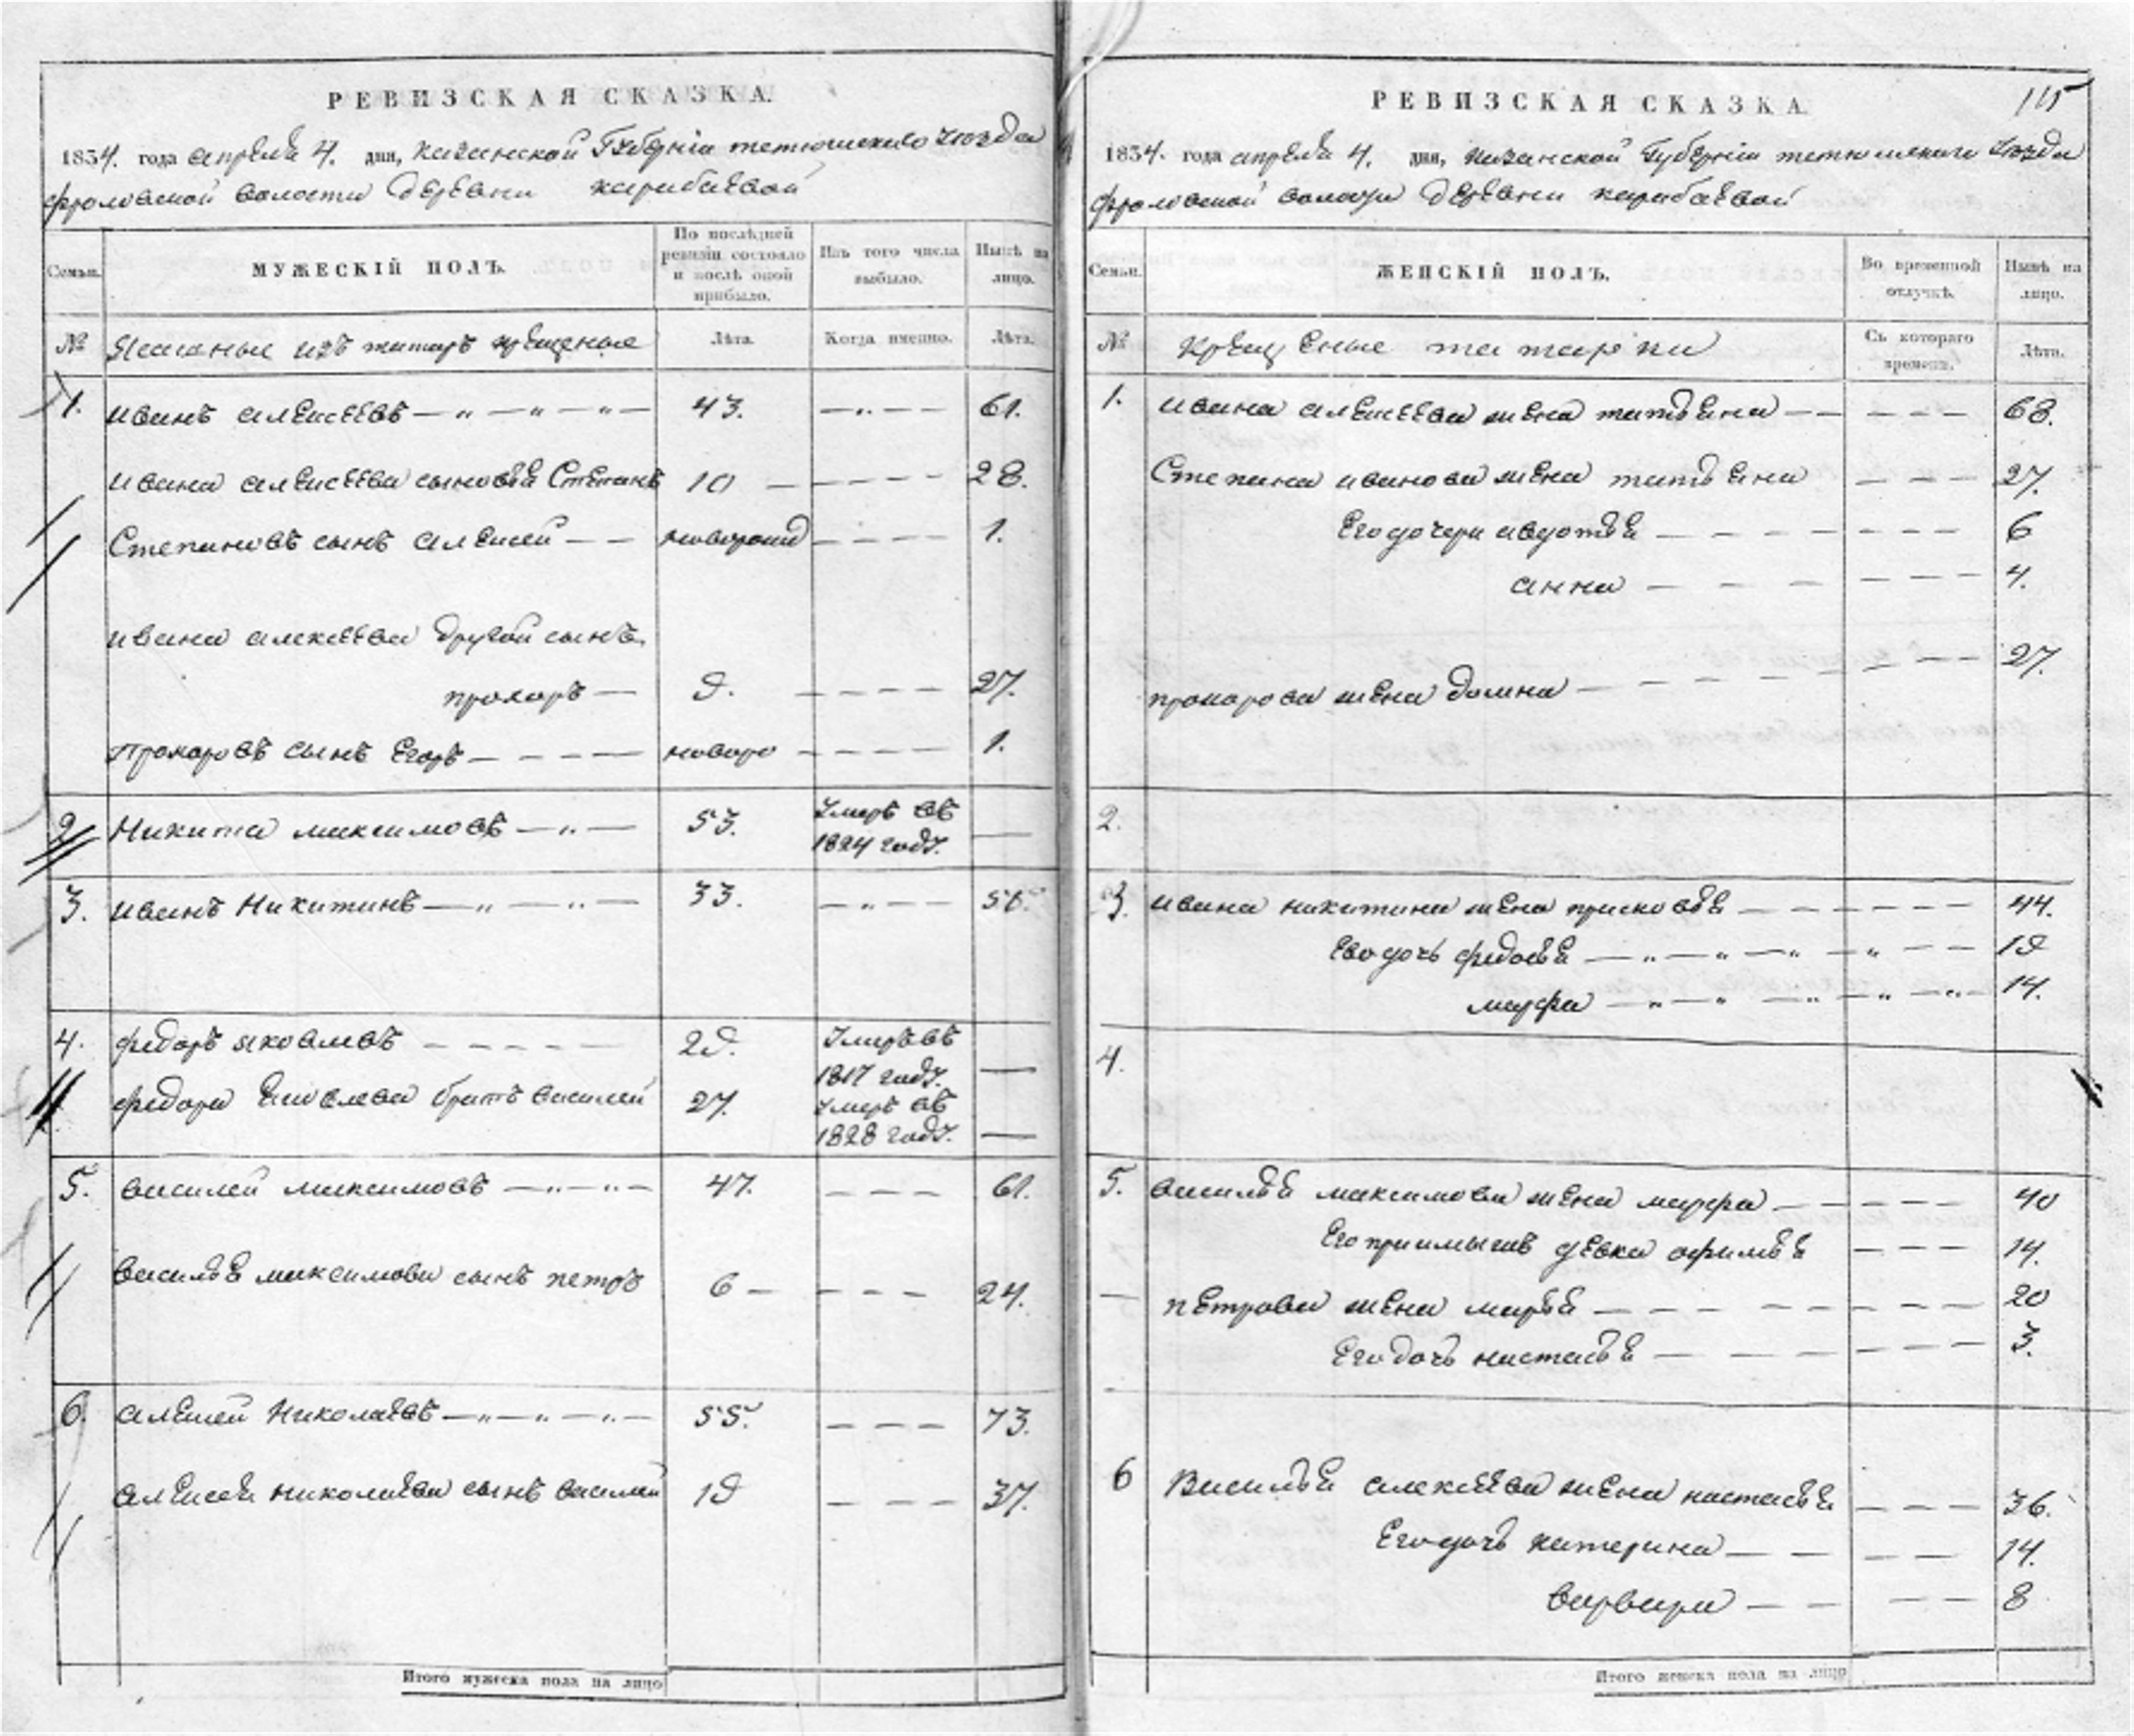 РЕВИЗСКАЯ СКАЗКА.
1834. года апреля 4. дня, казанской Губернiи тетюшскаго уезда
фроловской волости деревни карабаевой
Семьи.
МУЖЕСКIЙ ПОЛЪ.
По послѣдней ревизiи состояло и послѣ оной прибыло.
Изъ того числа выбыло.
Нынѣ на лицо.
№
Ясашные изъ татаръ крещеные
Лѣта.
Когда именно.
Лѣта.
1. иванъ алексеевъ — „ — „ — „ — 43. — „ — — 61.
ивана алексеева сыновья Степанъ 10 — — — — — 28.
Степановъ сынъ алексей — — новорожд — — — — 1.
ивана алексеева другой сынъ
прохоръ — 9. — — — — 27.
Прохоровъ сынъ Егоръ — — — — новоро — — — — 1.
2 Никита максимовъ — „ — 53. Умеръ въ 1824 году. —
3. иванъ Никитинъ — „ — „ — 33. — „ — — 50.
4. федоръ яковлевъ — — — — — 29. Умеръ въ 1817 году. —
федора яковлева братъ василей 27. Умеръ въ 1828 году. —
5. василей максимовъ — „ — „ — 47. — — — 61.
василья максимова сынъ петръ 6 — — — — 24.
6. алексей Николаевъ — „ — „ — „ — 55. — — — 73.
алексея николаева сынъ василей 19 — — — 37.
Итого мужеска пола на лицо
РЕВИЗСКАЯ СКАЗКА.
115
1834. года апреля 4. дня, казанской Губернiи тетюшскаго уезда
фроловской волости деревни карабаевой
Семьи.
ЖЕНСКIЙ ПОЛЪ.
Во временной отлучкѣ.
Нынѣ на лицо.
№
Крещеные татарки
Съ котораго времени.
Лѣта.
1. ивана алексеева жена татьяна — — — — — 68.
Степана иванова жена татьяна — — — 27.
Его дочери авдотья — — — — — — — 6
анна — — — — — — — 4.
прохорова жена домна — — — — — — — 27.
2.
3. ивана никитина жена прасковья — — — — — — — 44.
Его дочь федосья — „ — „ — „ — „ — — 19
марфа — „ — „ — „ — „ — „ — 14.
4.
5. василья максимова жена марфа — — — — — 40
Его приимышъ девка афимья — — — 14.
петрова жена марья — — — — — — — — 20
Его дочь настасья — — — — — — — 3.
6 Василья алексеева жена настасья — — — 36.
Его дочь катерина — — — — — 14.
варвара — — — — 8
Итого женска пола на лицо